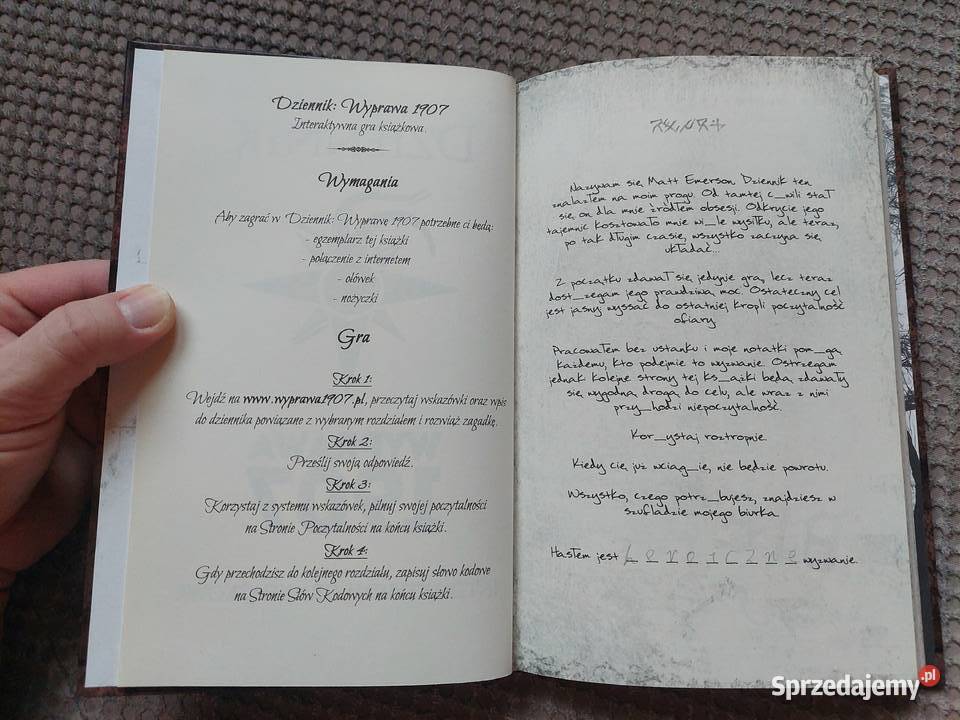 Dziennik: Wyprawa 1907
Interaktywna gra książkowa.
Wymagania
Aby zagrać w Dziennik: Wyprawę 1907 potrzebne ci będą:
- egzemplarz tej książki
- połączenie z internetem
- ołówek
- nożyczki
Gra
Krok 1:
Wejdź na www.wyprawa1907.pl, przeczytaj wskazówki oraz wpis
do dziennika powiązane z wybranym rozdziałem i rozwiąż zagadkę.
Krok 2:
Prześlij swoją odpowiedź.
Krok 3:
Korzystaj z systemu wskazówek, pilnuj swojej poczytalności
na Stronie Poczytalności na końcu książki.
Krok 4:
Gdy przechodzisz do kolejnego rozdziału, zapisuj słowo kodowe
na Stronie Słów Kodowych na końcu książki.
Nazywam się Matt Emerson. Dziennik ten
znalazłem na moim progu. Od tamtej c_wili stał
się on dla mnie źródłem obsesji. Odkrycie jego
tajemnic kosztowało mnie wi_le wysiłku, ale teraz,
po tak długim czasie, wszystko zaczyna się
układać...
Z początku zdawał się jedynie grą, lecz teraz
dost_zegam jego prawdziwą moc. Ostateczny cel
jest jasny: wyssać do ostatniej kropli poczytalność
ofiary.
Pracowałem bez ustanku i moje notatki pom_gą
każdemu, kto podejmie to wyzwanie. Ostrzegam
jednak: kolejne strony tej ks_ążki będą zdawały
się wygodną drogą do celu, ale wraz z nimi
przy_hodzi niepoczytalność.
Kor_ystaj roztropnie.
Kiedy cię już wciąg_ie, nie będzie powrotu.
Wszystko, czego potrz_bujesz, znajdziesz w
szufladzie mojego biurka.
Hasłem jest h e r o i c z n e wyzwanie.
Sprzedajemy.pl